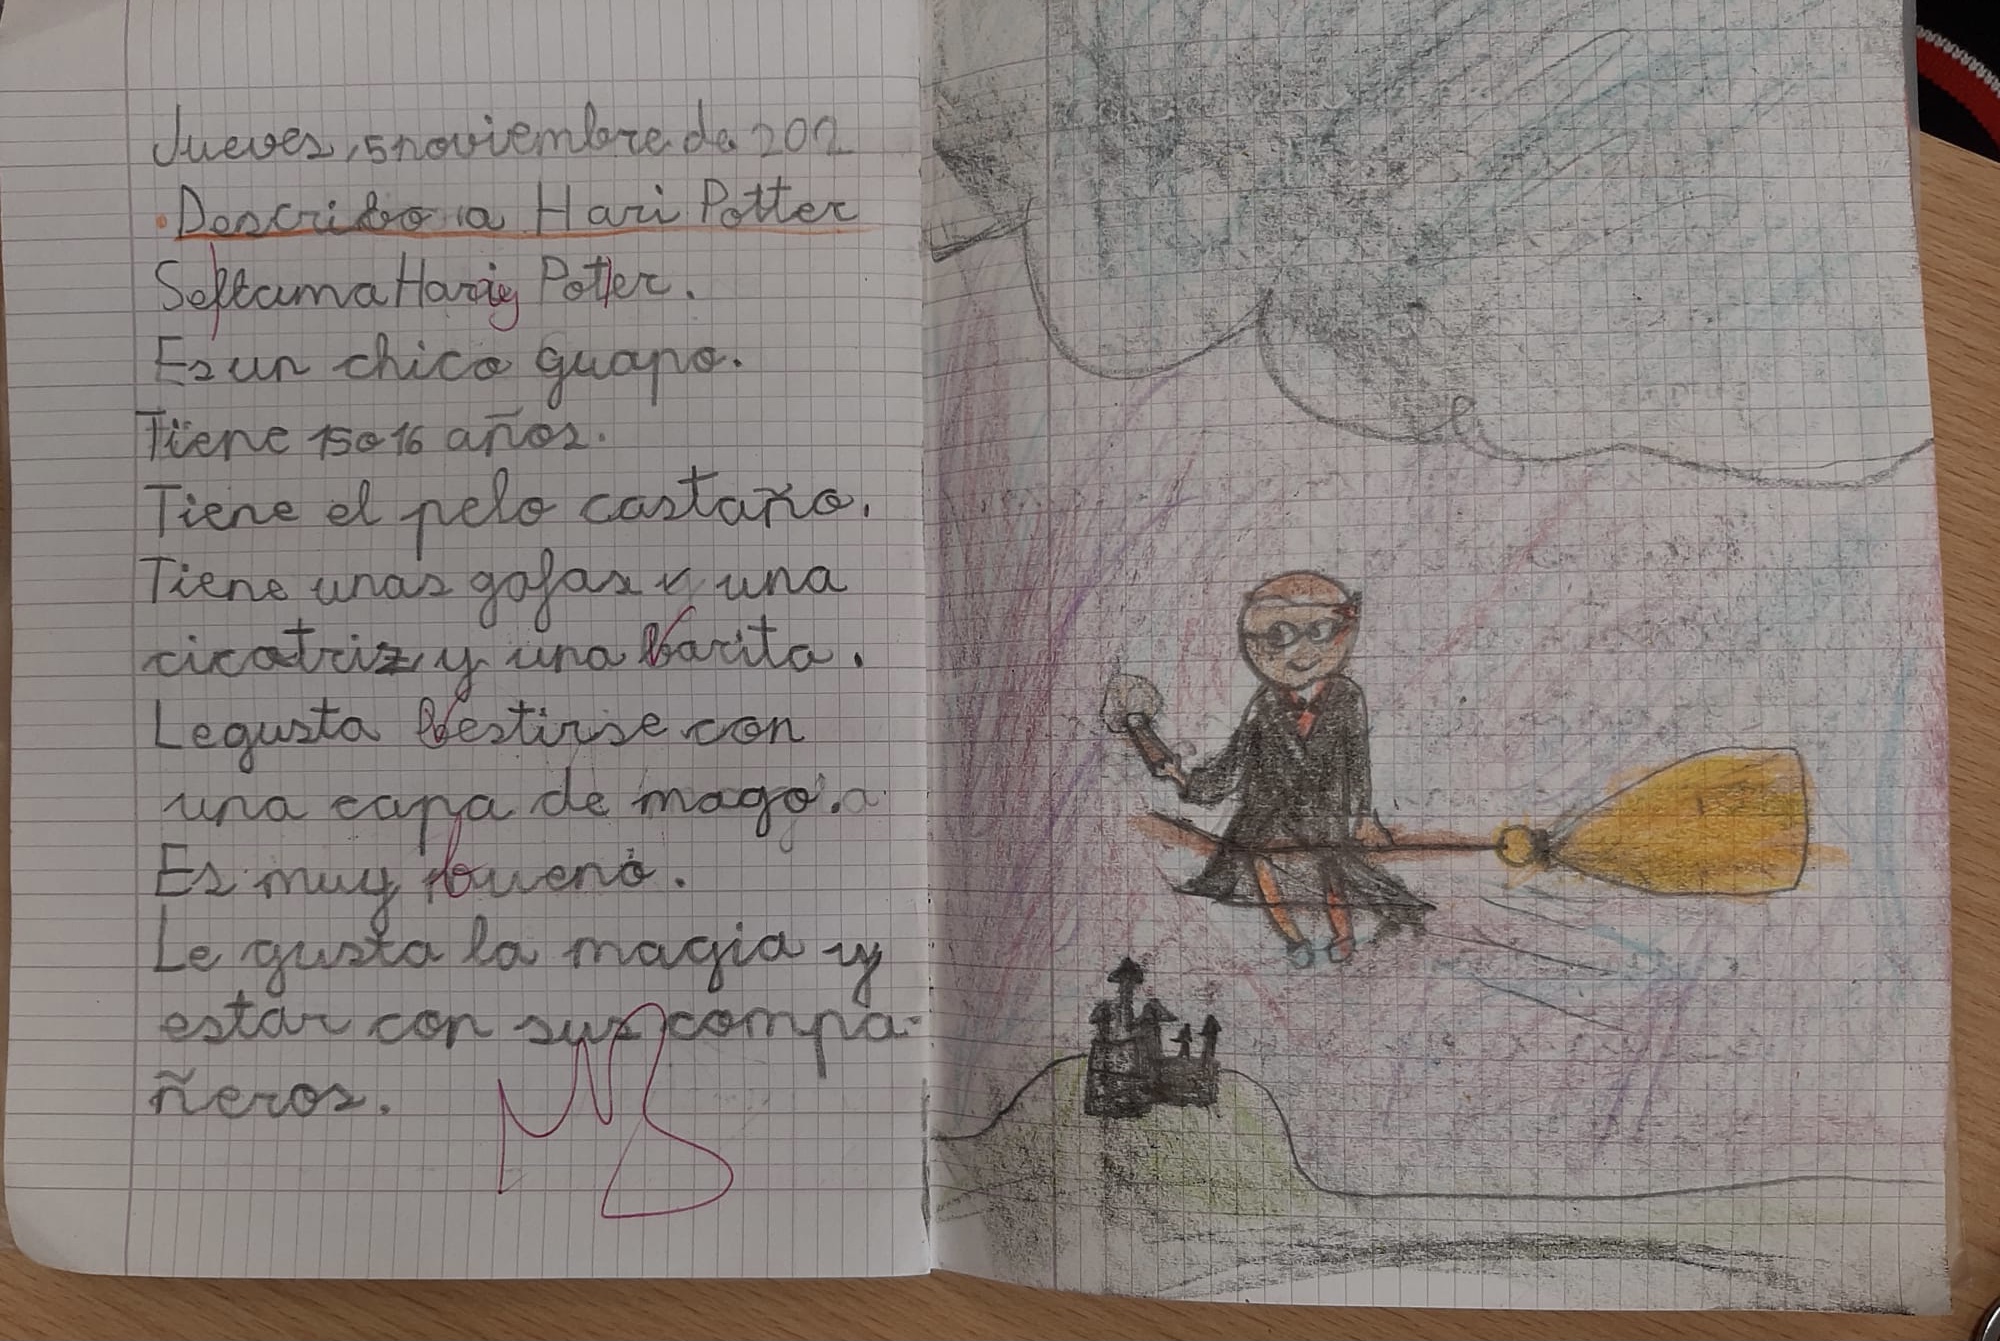 Jueves, 5 noviembre de 202
Describo a Hari Potter
Se llama Harry Potter.
Es un chico guapo.
Tiene 15 o 16 años.
Tiene el pelo castaño.
Tiene unas gafas y una
cicatriz y una varita.
Le gusta vestirse con
una capa de mago.
Es muy bueno.
Le gusta la magia y
estar con sus compa-
ñeros.